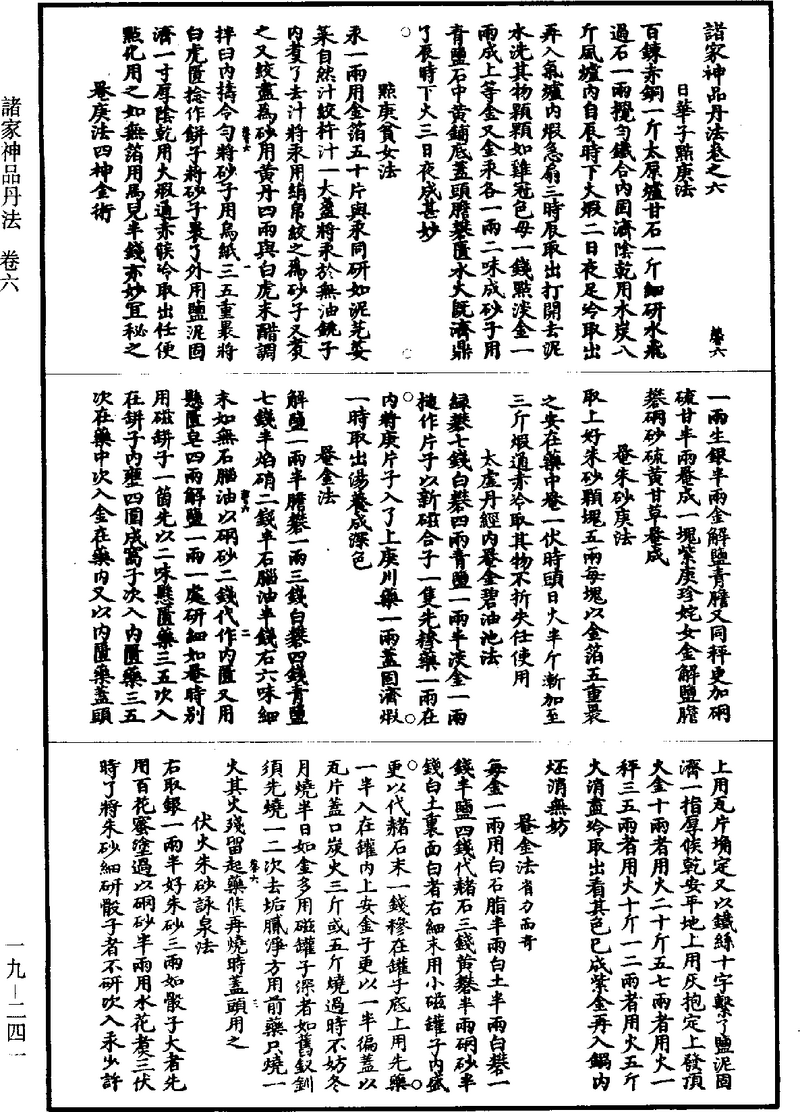 諸家神品丹法卷之六
卷六
日華子點庚法
百鍊赤銅一斤太原爐甘石一斤細研水飛
過石一兩攪勻鐵合內固濟陰乾用水炭八
斤風爐內自辰時下火煅二日夜足冷取出
再入氣爐內煅急扇三時辰取出打開去泥
水洗其物顆顆如雞冠色母一錢點淡金一
兩成上等金又金汞各一兩二味成砂子用
青鹽石中黃鋪底蓋頭膽礬匱水火既濟鼎
了辰時下火三日夜成甚妙
點庚貧女法
汞一兩用金箔五十片與汞同研如泥芫荽
菜自然汁絞杵汁一大盞將汞於無油銚子
內煑了去汁將汞用絹帛絞之為砂子又煑
之又絞盡為砂用黃丹四兩與白虎末醋調
拌臼內擣令勻將砂子用烏紙三五重裹將
白虎匱捻作餅子將砂子裹了外用鹽泥固
濟一寸厚陰乾用火煅通赤候冷取出任便
點化用之如無箔用馬兒半錢亦妙宜秘之
養庚法四神金術
一兩生銀半兩金解鹽青膽又同秤更加硇
硫甘半兩養成一塊紫庚珍姹女金解鹽膽
礬硇砂硫黃甘草養成
養朱砂庚法
取上好朱砂顆塊五兩每塊以金箔五重裹
之安在藥中養一伏時頭日火半斤漸加至
三斤煅通赤冷取其物不折失任使用
太虛丹經內養金碧油池法
綠礬七錢白礬四兩青鹽一兩半淡金一兩
搥作片子以新磁合子一隻先摻藥一兩在
內將庚片子入了上庚川藥一兩蓋固濟煅
一時取出湯養成深色
養金法
解鹽一兩半膽礬一兩三錢白礬四錢青鹽
七錢半焰硝二錢半石腦油半錢石六味細
末如無石腦油以硇砂二錢代作內匱又用
懸匱皂四兩解鹽一兩一處研細如養時別
用磁餅子一箇先以二味懸匱藥三五次入
在餅子內壅四圍成窩子次入內匱藥三五
次在藥中次入金在藥內又以內匱藥蓋頭
上用瓦片堉定又以鐵絲十字繫了鹽泥固
濟一指厚候乾安平地上用灰抱定上發頂
火金十兩者用火二十斤五七兩者用火一
秤三五兩者用火十斤一二兩者用火五斤
火消盡冷取出看其色已成紫金再入鍋內
坯消無妨
養金法省力而奇
每金一兩用白石脂半兩白土半兩白礬一
錢半鹽四錢代赭石三錢黃礬半兩硇砂半
錢白土裏面白者右細末用小磁罐子內盛
更以代赭石末一錢糝在罐子底上用先藥
一半入在罐內上安金子更以一半徧蓋以
瓦片蓋口炭火三斤或五斤燒過時不妨冬
月燒半日如金多用磁罐子深者如舊釵釧
須先燒一二次去垢膩淨方用前藥只燒一
火其火殘留起藥候再燒時蓋頭用之
伏火朱砂詠泉法
右取銀一兩半好朱砂三兩如骰子大者先
用百花蜜塗過以硇砂半兩用水花煑三伏
時了將朱砂細研骰子者不研次入汞少許
諸家神品丹法 卷六
一九－二四一